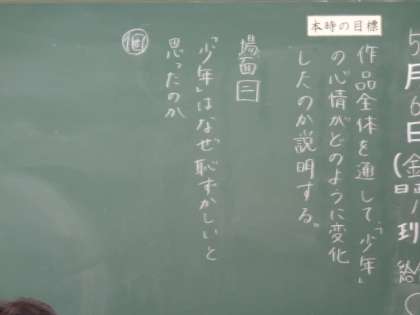 5月6日(金)
本時の目標
作品全体を通して、「少年」
の心情がどのように変化
したのか説明する。
場面二
「少年」はなぜ恥ずかしいと
思ったのか